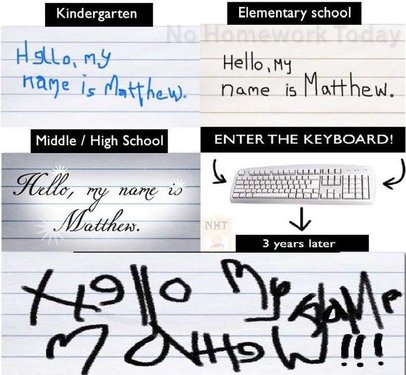 Kindergarten
Elementary school
No Homework Today
Hello, my
name is Matthew.
Hello, My
name is Matthew.
Middle / High School
ENTER THE KEYBOARD!
Hello, my name is
Matthew.
NHT
3 years later
Hello My NaMe
!!!